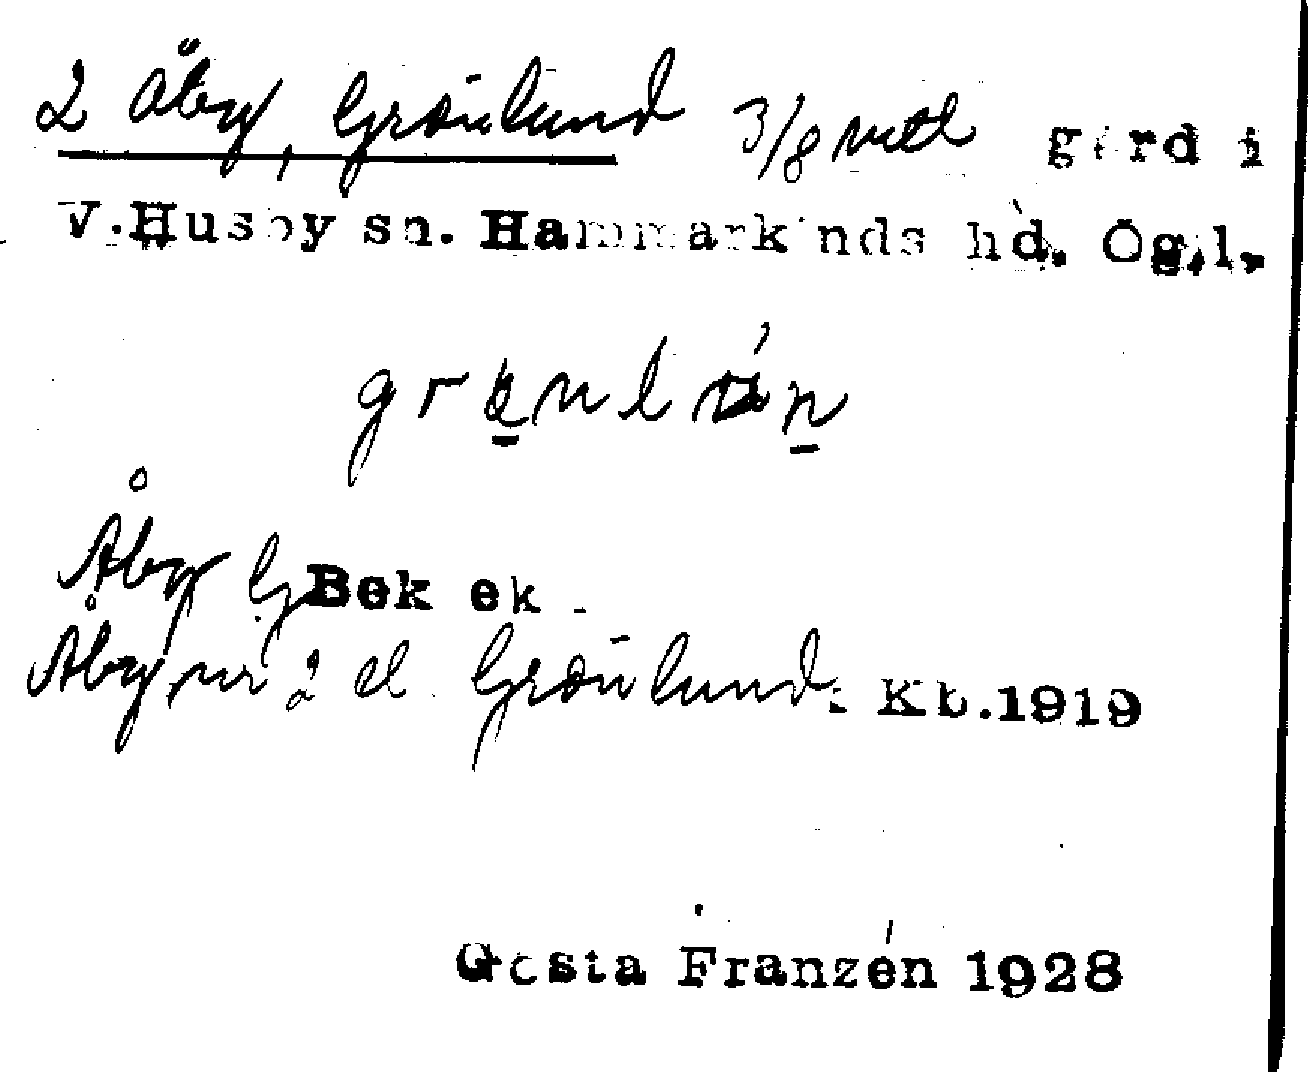 2 Åby, Grönlund 3/8 mtl gård i
V.Husby sn. Hammarkinds hd. Ög.l.
Åby G Bek ek.
Åby nr 2 el. Grönlund: Kb.1919
Gösta Franzén 1928